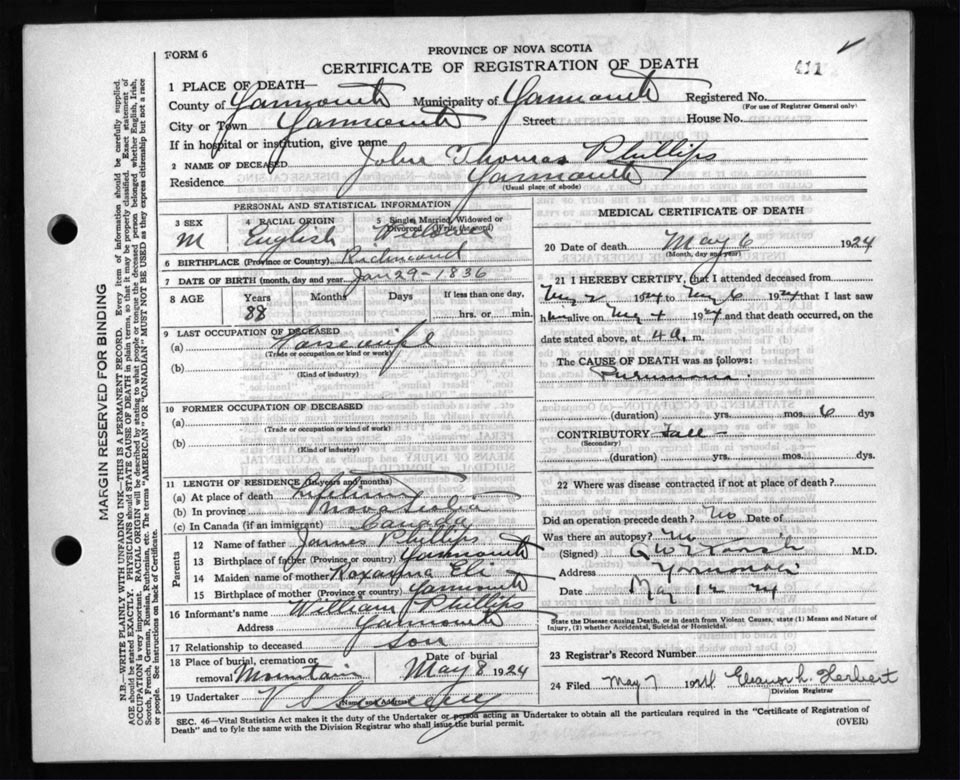 FORM 6
PROVINCE OF NOVA SCOTIA
CERTIFICATE OF REGISTRATION OF DEATH
411
1 PLACE OF DEATH—
County of Yarmouth Municipality of Yarmouth Registered No.
(For use of Registrar General only)
City or Town Yarmouth Street House No.
If in hospital or institution, give name
2 NAME OF DECEASED John Thomas Phillips
Residence Yarmouth
(Usual place of abode)
PERSONAL AND STATISTICAL INFORMATION
3 SEX 4 RACIAL ORIGIN 5 Single, Married, Widowed or Divorced (Write the word)
M English
6 BIRTHPLACE (Province or Country) Richmond
7 DATE OF BIRTH (month, day and year) Jan 29 - 1836
8 AGE Years Months Days If less than one day,
88 hrs. or min.
9 LAST OCCUPATION OF DECEASED
(a)
(Trade or occupation or kind or work)
(b)
(Kind of industry)
10 FORMER OCCUPATION OF DECEASED
(a)
(Trade or occupation or kind of work)
(b)
(Kind of industry)
11 LENGTH OF RESIDENCE (in years and months)
(a) At place of death
(b) In province Nova Scotia
(c) In Canada (if an immigrant) Canada
Parents
12 Name of father James Phillips
13 Birthplace of father (Province or country) Yarmouth
14 Maiden name of mother Roxanna Eli
15 Birthplace of mother (Province or country) Yarmouth
16 Informant's name William Phillips
Address Yarmouth
17 Relationship to deceased Son
18 Place of burial, cremation or removal Mountain Date of burial May 8 1924
19 Undertaker V S Sweeny
(Name and Address)
MEDICAL CERTIFICATE OF DEATH
20 Date of death May 6 1924
(Month, day and year)
21 I HEREBY CERTIFY, that I attended deceased from
May 2 1924 to May 6 1924 that I last saw
him alive on May 4 1924 and that death occurred, on the
date stated above, at 4 a. m.
The CAUSE OF DEATH was as follows:
Pneumonia.
(duration) yrs. mos. 6 dys
CONTRIBUTORY Fall -
(Secondary)
(duration) yrs. mos. dys.
22 Where was disease contracted if not at place of death?
Did an operation precede death? No Date of
Was there an autopsy? No
(Signed) M.D.
Address Yarmouth
Date May 12 24
State the Disease causing Death, or in death from Violent Causes, state (1) Means and Nature of Injury, (2) whether Accidental, Suicidal or Homicidal.
23 Registrar's Record Number
24 Filed May 7 1924 Eleanor L. Herbert
Division Registrar
SEC. 46—Vital Statistics Act makes it the duty of the Undertaker or person acting as Undertaker to obtain all the particulars required in the "Certificate of Registration of
Death" and to fyle the same with the Division Registrar who shall issue the burial permit. (OVER)
MARGIN RESERVED FOR BINDING
N.B.—WRITE PLAINLY WITH UNFADING INK—THIS IS A PERMANENT RECORD. Every item of information should be carefully supplied.
AGE should be stated EXACTLY. PHYSICIANS should STATE CAUSE OF DEATH in plain terms, so that it may be properly classified. Exact statement of
OCCUPATION is very important. RACIAL ORIGIN will be described by stating to what people or tongue the deceased person belonged whether English, Irish,
Scotch, French, German, Russian, Ruthenian, etc. The terms "AMERICAN" OR "CANADIAN" MUST NOT BE USED as they express citizenship but not a race
or people. See instructions on back of Certificate.